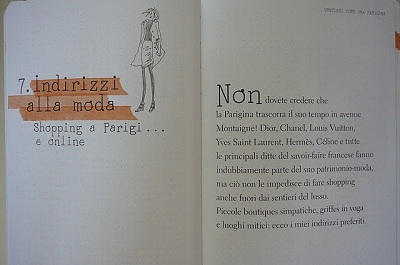 7. indirizzi
alla moda
Shopping a Parigi...
e online
VESTIRSI COME UNA PARIGINA
Non dovete credere che
la Parigina trascorra il suo tempo in avenue
Montaigne! Dior, Chanel, Louis Vuitton,
Yves Saint Laurent, Hermès, Céline e tutte
le principali ditte del savoir-faire francese fanno
indubbiamente parte del suo patrimonio-moda,
ma ciò non le impedisce di fare shopping
anche fuori dai sentieri del lusso.
Piccole boutiques simpatiche, griffes in voga
e luoghi mitici: ecco i miei indirizzi preferiti.